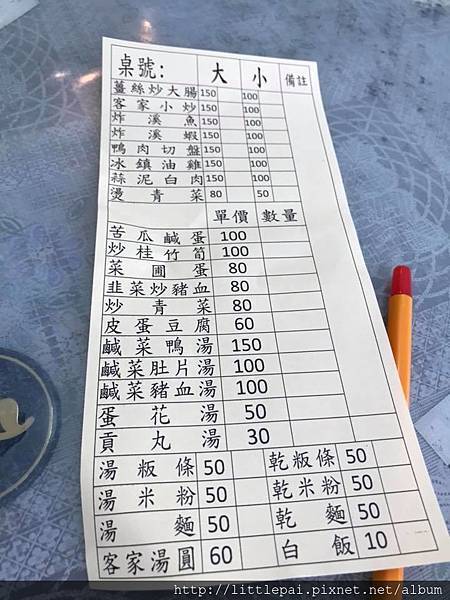 桌號: 大 小 備註
薑絲炒大腸 150 100
客家小炒 150 100
炸溪魚 150 100
炸溪蝦 150 100
鴨肉切盤 150 100
冰鎮油雞 150 100
蒜泥白肉 150 100
燙青菜 80 50
單價 數量
苦瓜鹹蛋 100
炒桂竹筍 100
菜圃蛋 80
韭菜炒豬血 80
炒青菜 80
皮蛋豆腐 60
鹹菜鴨湯 150
鹹菜肚片湯 100
鹹菜豬血湯 100
蛋花湯 50
貢丸湯 30
湯粄條 50 乾粄條 50
湯米粉 50 乾米粉 50
湯麵 50 乾麵 50
客家湯圓 60 白飯 10
http://littlepai.pixnet.net/album